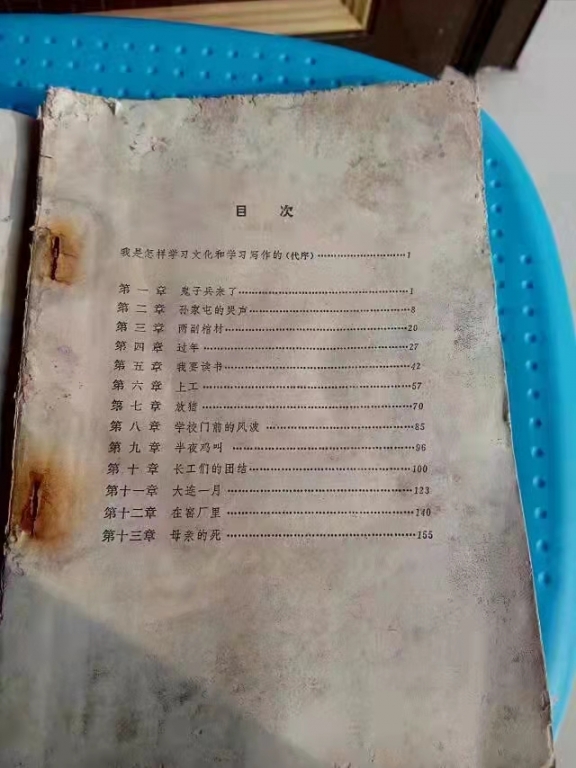 目次
我是怎样学习文化和学习写作的（代序）……………………1
第一章 鬼子兵来了……………………1
第二章 孙家屯的哭声……………………8
第三章 两副棺材……………………20
第四章 过年……………………27
第五章 我要读书……………………42
第六章 上工……………………57
第七章 放猪……………………70
第八章 学校门前的风波……………………85
第九章 半夜鸡叫……………………96
第十章 长工们的团结……………………100
第十一章 大连一月……………………123
第十二章 在窑厂里……………………140
第十三章 母亲的死……………………155